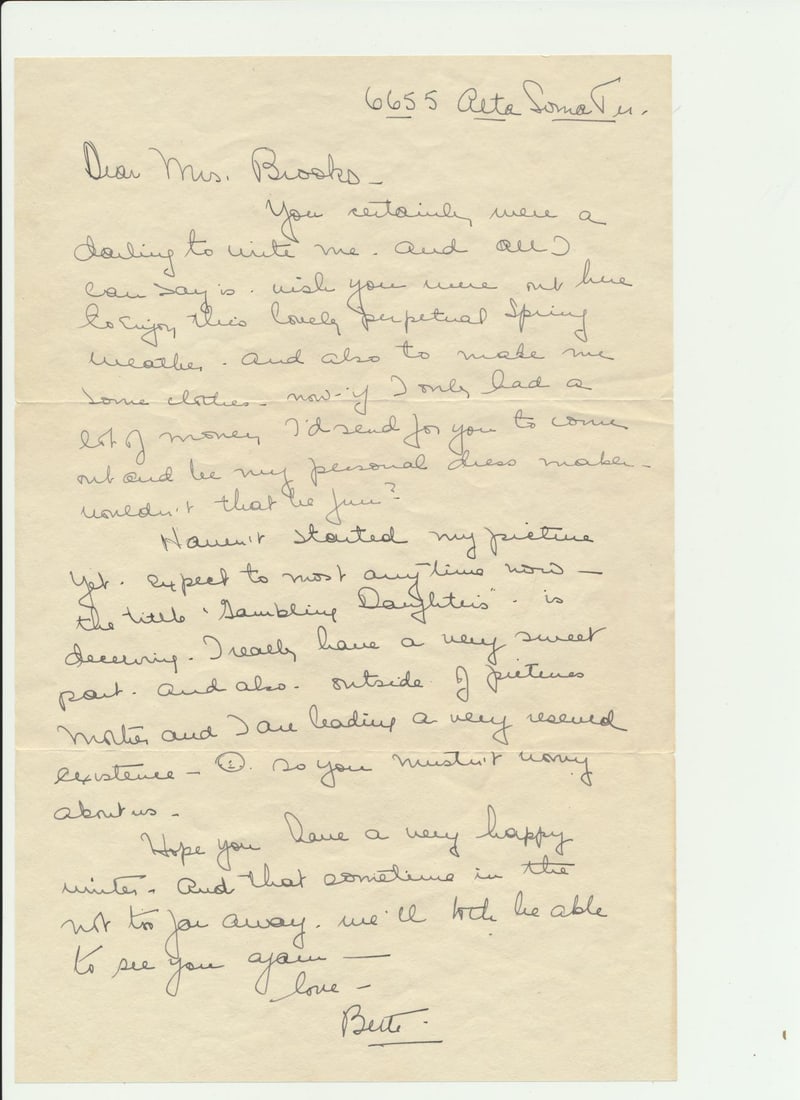 6655 Alta Loma Ter.
Dear Mrs. Brooks -
You certainly were a
darling to write me. and all I
can say is. wish you were out here
to enjoy this lovely perpetual Spring
weather. and also to make me
some clothes - now - if I only had a
lot of money I'd send for you to come
out and be my personal dress maker -
wouldn't that be fun?
Haven't started my picture
yet. expect to most any time now -
the title "Gambling Daughters". is
deceiving. I really have a very sweet
part. and also. outside of pictures
Mother and I are leading a very reserved
existence - ☺. so you mustn't worry
about us -
Hope you have a very happy
winter. And that sometime in the
not too far away. we'll both be able
to see you again -
love -
Bette.